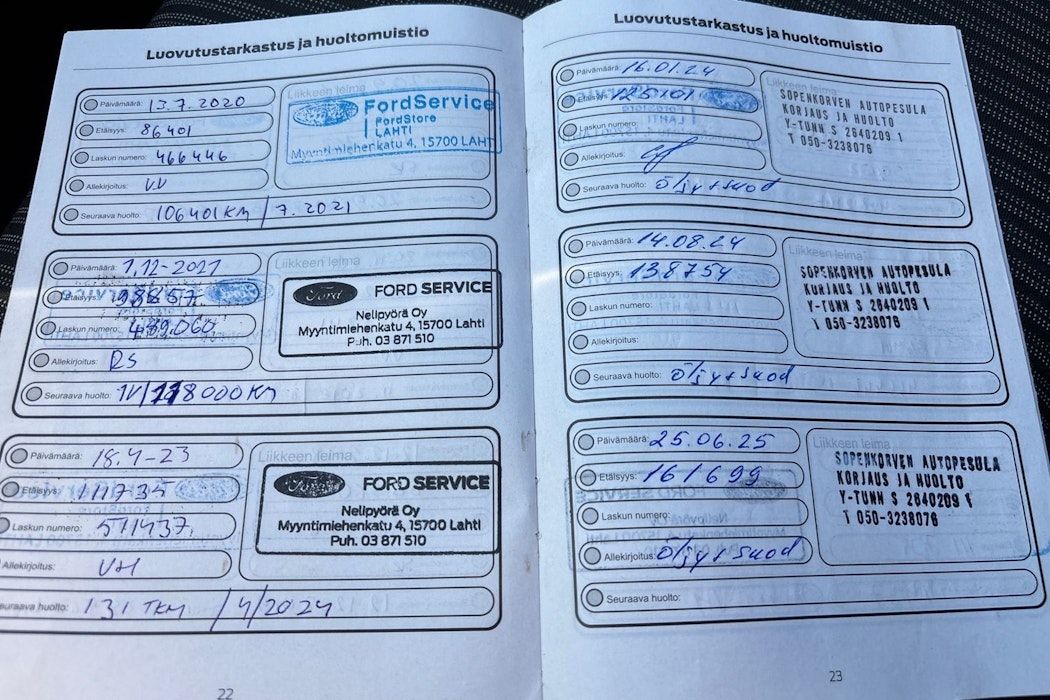 Luovutustarkastus ja huoltomuistio
Päivämäärä: 13.7.2020
Etäisyys: 86401
Laskun numero: 466446
Allekirjoitus: V.V
Seuraava huolto: 106401KM / 7.2021
Liikkeen leima
Ford
FordService
FordStore
LAHTI
Myyntimiehenkatu 4, 15700 LAHTI
Päivämäärä: 1,12-2021
Etäisyys: 98857.
Laskun numero: 489.060
Allekirjoitus: RS
Seuraava huolto: 1V/118000KM
Liikkeen leima
Ford
FORD SERVICE
Nelipyörä Oy
Myyntimiehenkatu 4, 15700 Lahti
Puh. 03 871 510
Päivämäärä: 18.4-23
Etäisyys: 111735
Laskun numero: 511437.
Allekirjoitus: VH
Seuraava huolto: 131 TKM /4/2024
Liikkeen leima
Ford
FORD SERVICE
Nelipyörä Oy
Myyntimiehenkatu 4, 15700 Lahti
Puh. 03 871 510
22
Luovutustarkastus ja huoltomuistio
Päivämäärä: 16.01.24
Etäisyys: 125101
Laskun numero:
Allekirjoitus:
Seuraava huolto: öljy+suod
Liikkeen leima
SOPENKORVEN AUTOPESULA
KORJAUS JA HUOLTO
Y-TUNN S 2640209 1
T 050-3238076
Päivämäärä: 14.08.24
Etäisyys: 138754
Laskun numero:
Allekirjoitus:
Seuraava huolto: öljy+suod
Liikkeen leima
SOPENKORVEN AUTOPESULA
KORJAUS JA HUOLTO
Y-TUNN S 2640209 1
T 050-3238076
Päivämäärä: 25.06.25
Etäisyys: 161699
Laskun numero:
Allekirjoitus: öljy+suod
Seuraava huolto:
Liikkeen leima
SOPENKORVEN AUTOPESULA
KORJAUS JA HUOLTO
Y-TUNN S 2640209 1
T 050-3238076
23